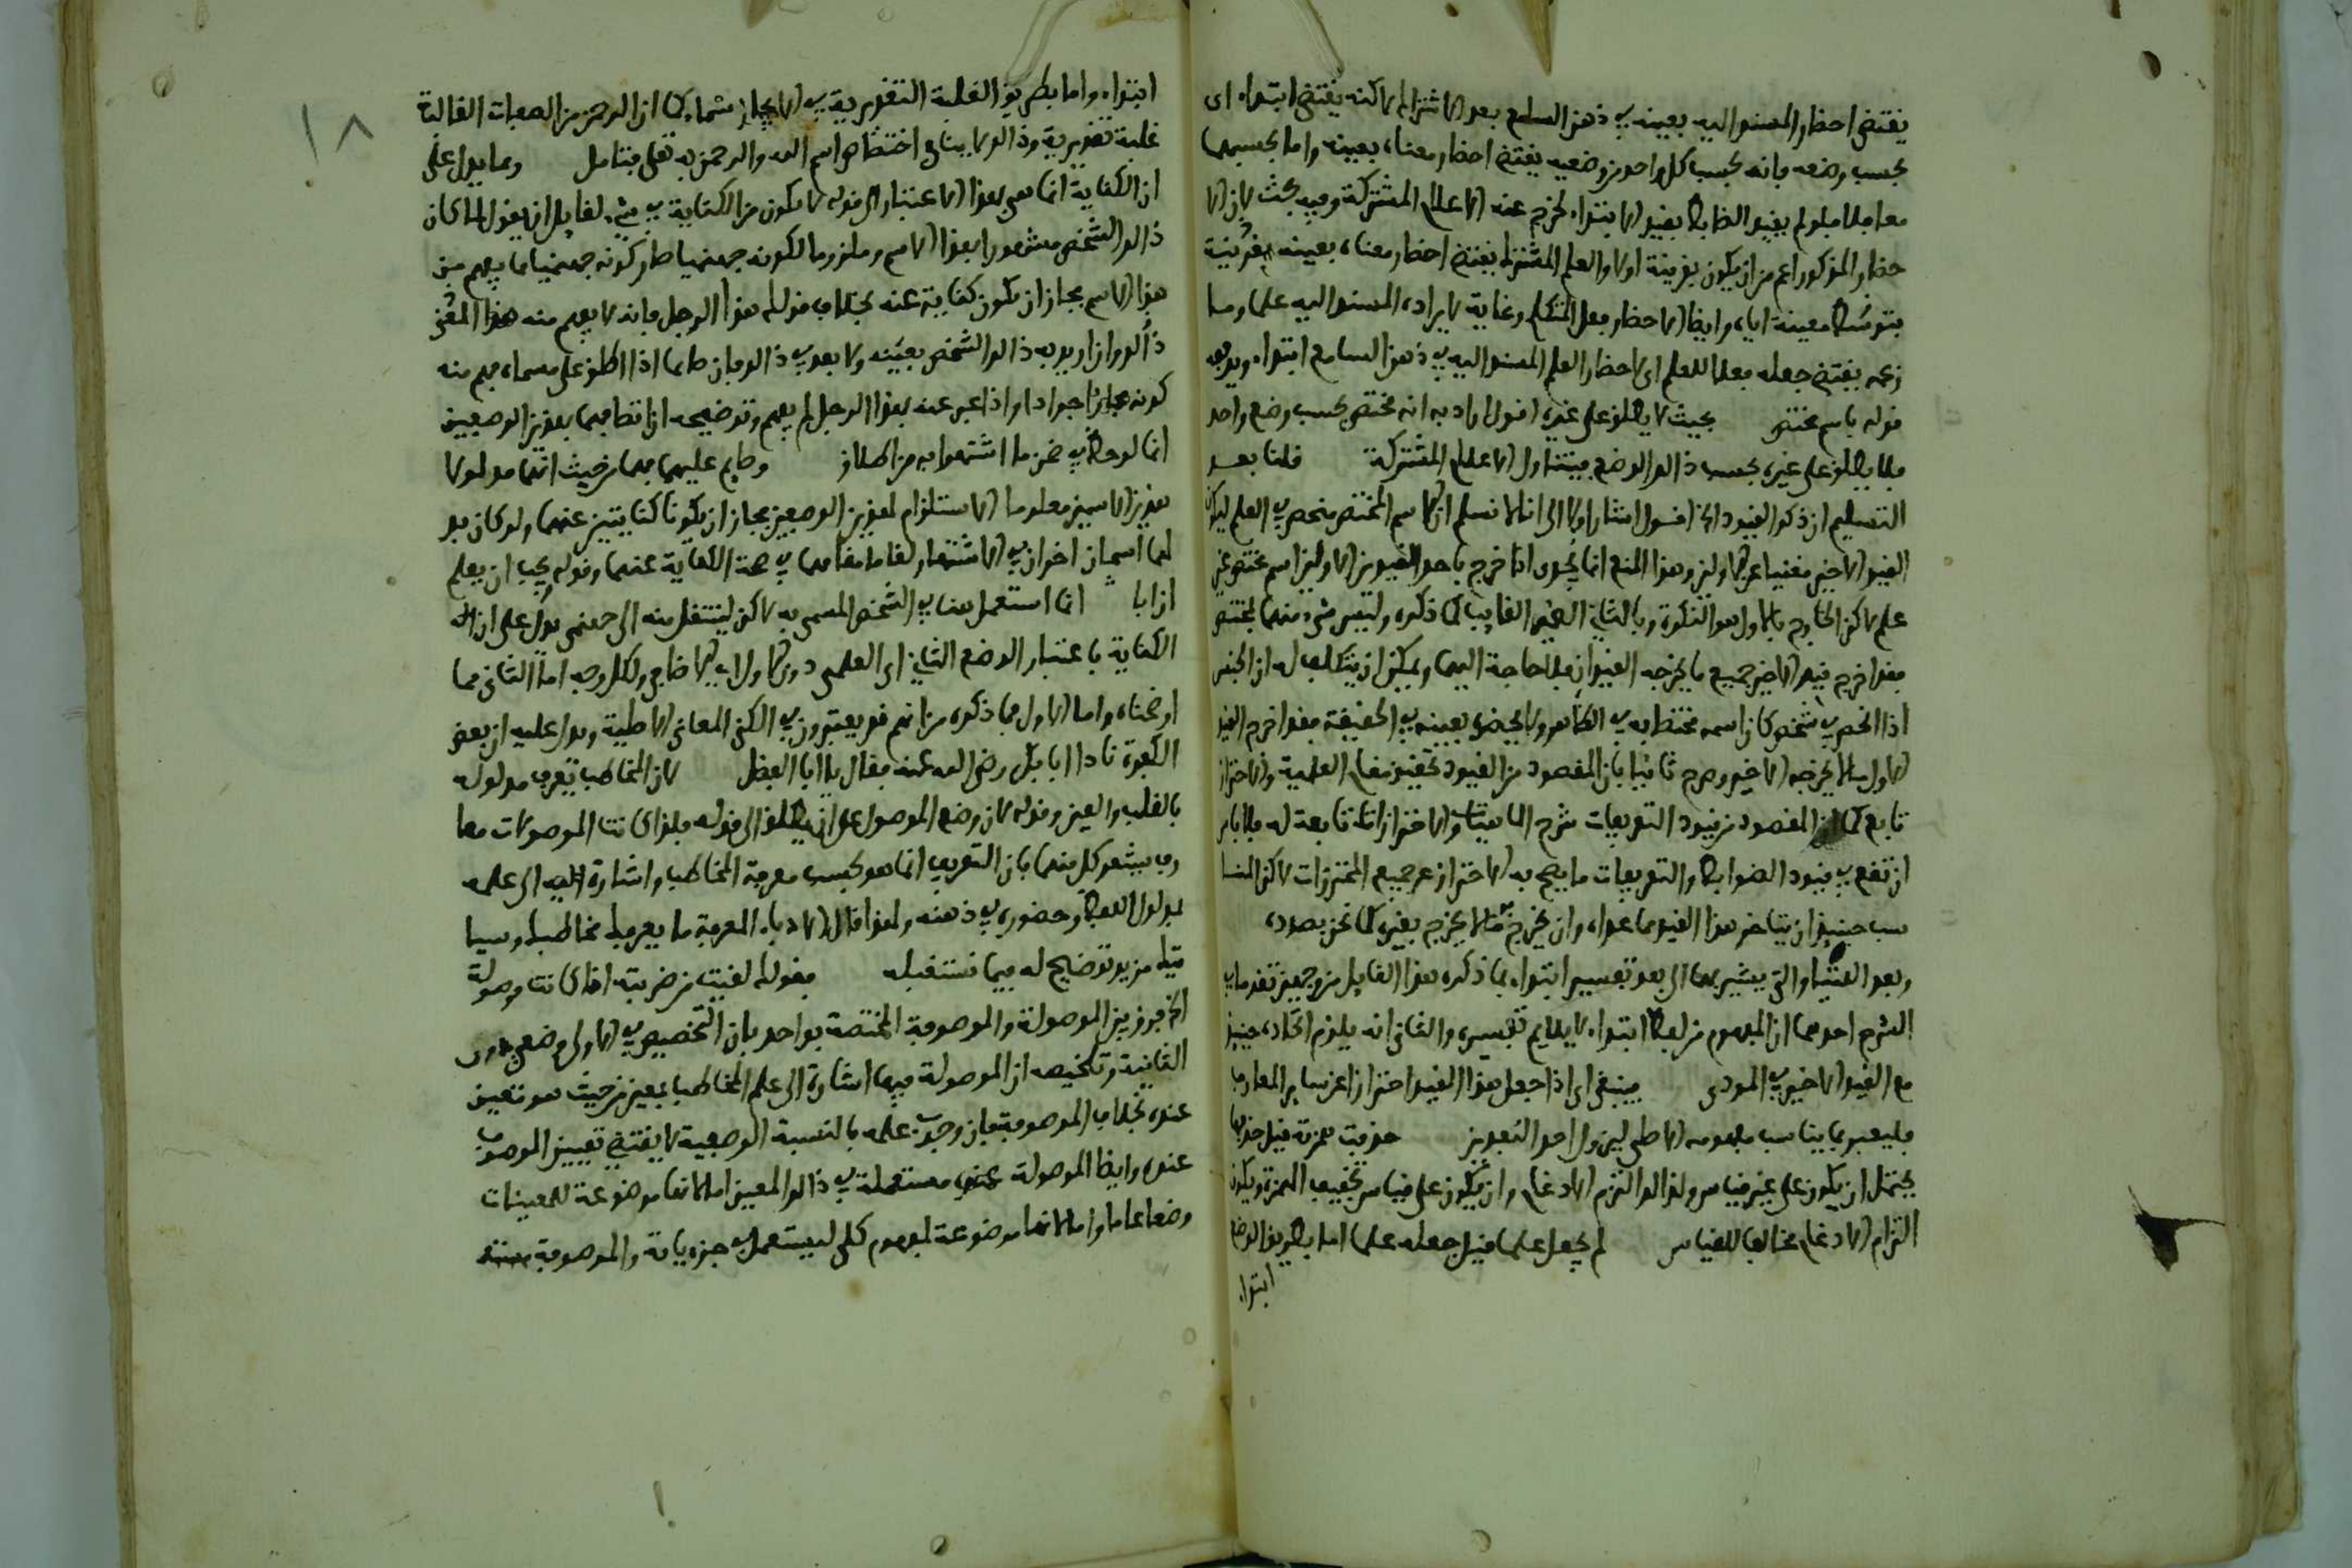 يقتضي احضار المسند اليه بعينه في ذهن السامع بعد الاشتراك لاكنه يقتضي ابتداء اي
بحسب وضعه فانه بحسب كل واحد من وضعيه يقتضي احضار معناه بعينه واما بحسبهما
معا فلا فلو لم يقيد الضابط بقيد الابتداء لخرج عنه الاعلام المشتركة وفيه بحث لان الا
حضار المذكور اعم من ان يكون بقرينة اولا والعلم المشترك يقتضي احضار معناه بعينه بقرينة
بتوسط معينة اياه وايضا الاحضار فعل المتكلم وغاية لايراده المسند اليه علما وما
زعمه يقتضي جعله فعلا للعلم اي لاحضار العلم المسند اليه في ذهن السامع ابتداء
قوله باسم مختص بحيث لا يطلق على غيره اقول اراد به انه مختص بحسب وضع واحد
فلا يطلق على غيره بحسب ذالك الوضع فيتناول الاعلام المشتركة قلنا بعد
التسليم ان ذكر القيود الخ اقول اشار اولا الى انا لا نسلم ان الاسم المختص منحصر في العلم ليكون
القيد الاخير مغنيا عن الاولين وهذا المنع انما يجدي اذا خرج باحد القيدين الاولين اسم مختص غير
علم لاكن الخارج بالاول هو النكرة وبالثاني الضمير الغايب كما ذكره وليس شيء منهما بمختص
فقد اخرج قيد الاخير جميع ما يخرجه القيدان فلا حاجة اليهما ويمكن ان يتكلف له ان الجنس
اذا انحصر في شخص كان اسمه مختصا به في الظاهر ولا يحضره بعينه في الحقيقة فقد اخرج القيد
الاول ما لا يخرجه الاخير وصرح ثانيا بان المقصود من القيود تحقيق مقام العلمية والاحتراز
تابع كما ان المقصود من قيود التعريفات شرح الماهيات والاحترازات تابعة له فلا باس
ان تقع في قيود الضوابط والتعريفات ما يصح به الاحتراز عن جميع المحترزات لاكن المنا
سب حينيذ ان يتاخر هذا القيد عما عداه وان يخرج به ما لا يخرج بغيره كما نحن بصدده
وبعد اللتيا والتي يشير بهما الى بعد تفسير ابتداء بما ذكره هذا القايل من وجهين تقدما في
الشرح احدهما ان المفهوم من لفظ ابتداء لا يلايم تفسيره والثاني انه يلزم اتحاده حينيذ
مع القيد الاخير في المودى فينبغي اي اذا جعل هذا القيد احترازا عن ساير المعارف
فليعبر بما يناسب مفهومه الاصلي ليزول احد البعدين حذفت همزته قيل حذفها
يحتمل ان يكون على غير قياس ولذالك التزم الادغام وان يكون على قياس تخفيف الهمزة ويكون
التزام الادغام مخالفا للقياس ثم جعل علما قيل جعله علما اما بطريق الوضع
ابتداء
١٨
ابتداء واما بطريق الغلبة التقديرية في الاسماء كما ان الرحمن من الصفات الغالبة
غلبة تقديرية وذالك لا ينافي اختصاص اسم الله والرحمن به تعلى فتامل ومما يدل على
ان الكناية انما هي بهذا الاعتبار الى قوله لا يكون من الكناية في شيء لقايل ان يقول لما كان
ذالك الشخص مشهورا بهذا الاسم وملزوما لكونه جهنميا صار كونه جهنميا مما يفهم من
هذا الاسم فجاز ان يكون كناية عنه بخلاف قولك هذا الرجل فانه لا يفهم منه هذا المعنى
ذالك وان اريد به ذالك الشخص بعينه ولا بعد في ذالك فان حاتما اذا اطلق على مسماه فهم منه
كونه جوادا واذا عبر عنه بهذا الرجل لم يفهم وتوضيحه ان اتصافهما بهذين الوصفين
انما لوحظ في ضمن ما اشتهرا به من اطلاق وحاتم عليهما فهما من حيث انهما مدلولا
هذين الاسمين معلوما الاستلزام لهذين الوصفين فجاز ان يكونا كنايتين عنهما ولو كان
لهما اسمان اخران في الاشتهار لقاما مقامهما في صحة الكناية عنهما وقوله يجب ان يعلم
ان ابا انما استعمل هنا في الشخص المسمى به لاكن لينتقل منه الى جهنمي يدل على ان
الكناية باعتبار الوضع الثاني اي العلمي دون الاول اي الاضافي ولكل وجه اما الثاني فما
اوضحناه واما الاول فما ذكره من انهم قد يعتبرون في الكنى المعاني الاصلية ويدل عليه ان بعض
الكفرة نادا ابا بكر رضي الله عنه فقال يا ابا الفضل لان المخاطب تعرف مدلوله
بالقلب والعين وقوله لان وضع الموصول على ان يطلق الى قوله فلذا كانت الموصولات معا
رف يشعر كل منهما بان التعريف انما هو بحسب معرفة المخاطب واشارة الى علمه
بمدلول اللفظ وحضوره في ذهنه ولهذا قال الادباء المعرفة ما يعرفه مخاطبك وسيا
تيك مزيد توضيح له فيما نستقبله فقولك لقيت من ضربته اذا كانت موصولة
الخ فرق بين الموصولة والموصوفة المختصة بواحد بان التخصيص في الاولى وضعي دون
الثانية وتلخيصه ان الموصولة فيها اشارة الى علم المخاطب بمعين من حيث هو تعين
عنده بخلاف الموصوفة فان وجوب علمه بالنسبة الوصفية لا يقتضي تعيين الموصوف
عنده وايضا الموصولة مستعملة في ذالك المعين اما لانها موضوعة للمعينات
وضعا عاما واما لانها موضوعة لمفهوم كلي ليستعمل في جزءياته والموصوفة